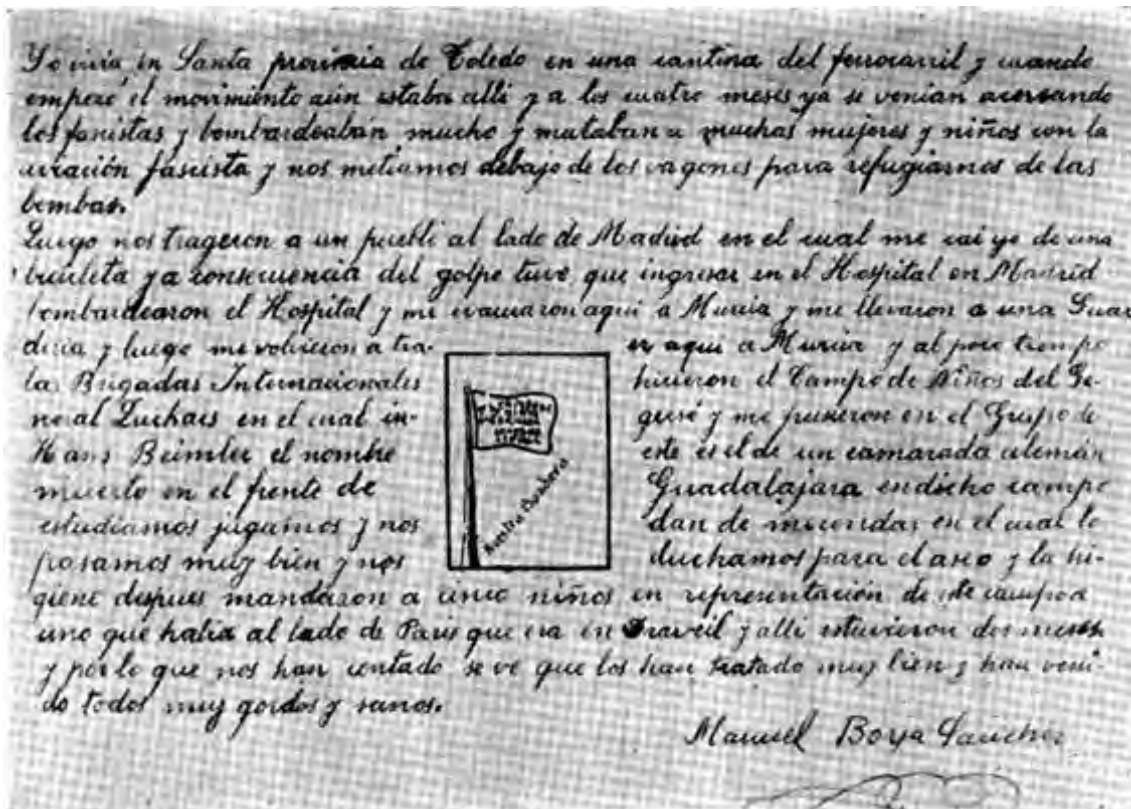 Yo vivia en Santa provincia de Toledo en una cantina del ferrocarril y cuando
empezó el movimiento aún estaba alli y a los cuatro meses ya se venian acercando
los fascistas y bombardeaban mucho y mataban a muchas mujeres y niños con la
aviación fascista y nos metiamos debajo de los vagones para refugiarnos de las
bombas.
Luego nos trageron a un pueblo al lado de Madrid en el cual me cai yo de una
bicicleta y a consecuencia del golpe tuve que ingresar en el Hospital en Madrid
bombardearon el Hospital y me evacuaron aqui a Murcia y me llevaron a una Guar
deria y luego me volvieron a tra- er aqui a Murcia y al poco tiempo
las Brigadas Internacionales hicieron el Campo de Niños del Ge-
neral Luckacs en el cual in- gresé y me pusieron en el Grupo de
Hans Beimler el nombre este es el de un camarada alemán
muerto en el frente de Guadalajara en dicho campo
estudiamos jugamos y nos dan de meriendas en el cual lo
pasamos muy bien y nos duchamos para el aseo y la hi-
giene despues mandaron a cinco niños en representación de este campo a
uno que habia al lado de Paris que era en Draveil y alli estuvieron dos meses
y por lo que nos han contado se ve que los han tratado muy bien y han veni-
do todos muy gordos y sanos.
Nuestra Bandera
Manuel Boya Sanchez